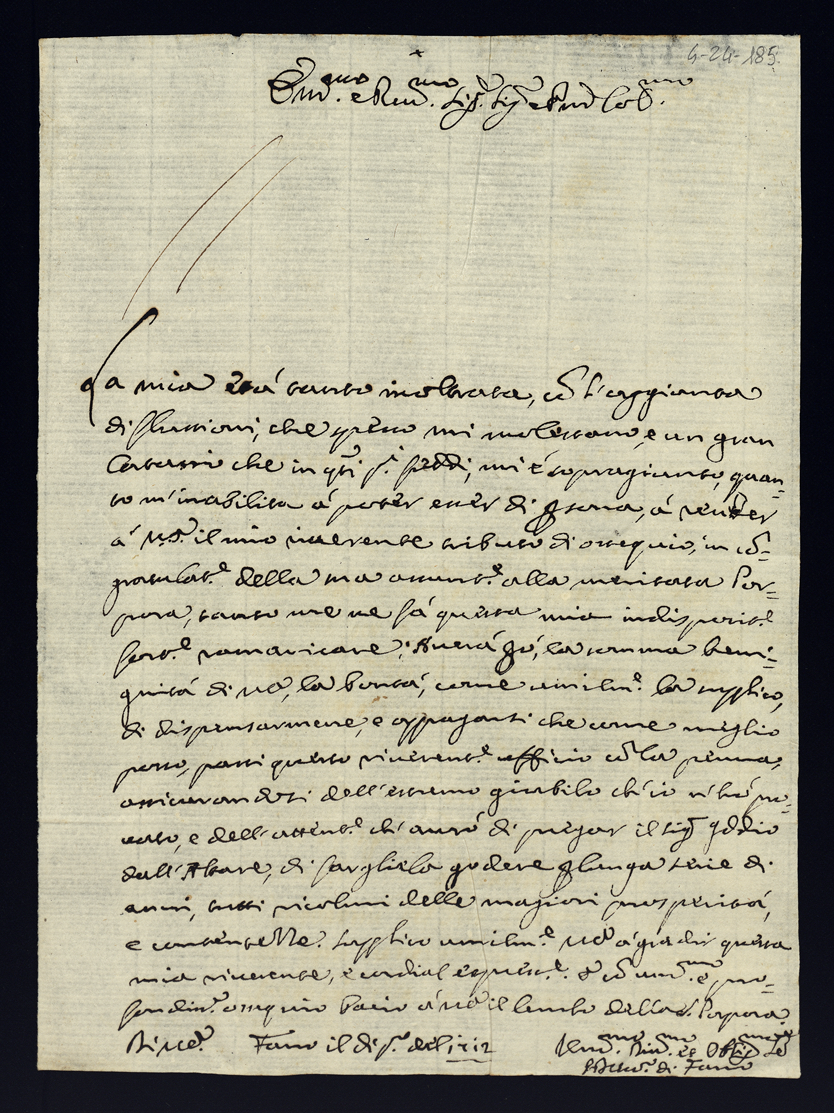 4-24-185
Em.mo e Rev.mo Sig.r Sig.r e Pron Col.mo
La mia età tanto inoltrata, cō l'aggionta
di flussioni, che spesso mi molestano, e un gran
Catarro che in q.ti p.i freddi, mi è sopragionto, quan=
to m'inabilita á poter esser di psona, á render
á V.E. il mio riverente tributo di ossequio, in cō=
gratulat.e della sua assunt.e alla meritata Por=
pora, tanto me ne fá questa mia indisposit.e
fort.e ramaricare; Averá pó, la somma beni=
gnitá di V.E., la bontá, come umilm.e la supplico,
di dispensarmene, e appagarsi che come meglio
posso, passi questo riverent.e officio cō la penna,
assicurandosi dell'estremo giubilo ch'io n'hó pro=
vato, e dell'attent.e ch'avró di pregar il Sig.r Iddio
dall'Altare, di fargliela godere p lunga serie di
anni, tutti ricolmi delle magiori prosperitá,
e contentezze. Supplico umilm.e V.E. á gradir questa
mia riverente, e cordial espress.e. E cō um.mo e, pro=
fondiss.o ossequio bacio á V.E. il lembo della S. Porpora.
Di V.E. Fano il di p.o del 1712
Um.mo Div.mo et Obblig.mo Se.
Il Vesc.o di Fano